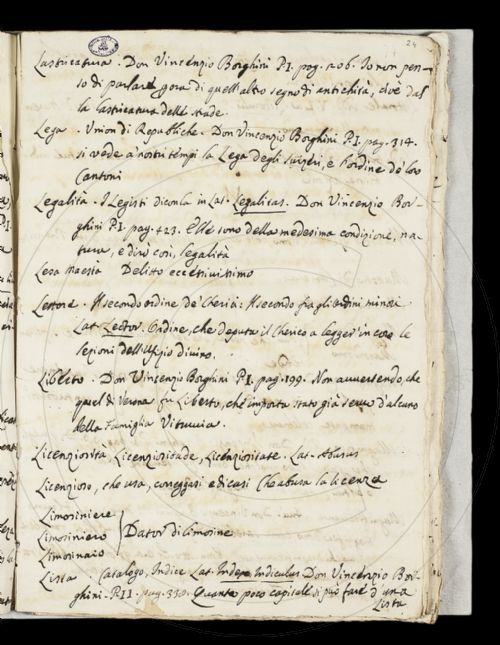 24
Lastricatura. Don Vincenzio Borghini P.I. pag. 206. Io non pen-
so di parlare gora di quell'altro segno di antichità, cioè dal
la lastricatura delle strade.
Lega. Union di Republiche. Don Vincenzio Borghini P.I. pag. 314.
si vede a nostri tempi la Lega degli Svizzeri, e l'ordine de' loro
Cantoni
Legalità. I Legisti diconla in Lat. Legalitas. Don Vincenzio Bor-
ghini P.I. pag. 423. Elle sono della medesima condizione, na-
tura, e dirò così, legalità
Lesa Maestà Delitto eccessivissimo
Lettore. Il secondo ordine de' Cherici: Il secondo fra gli Ordini minori
Lat. Lector. Ordine, che deputa il Cherico a legger in coro le
lezioni dell'Ufizio divino.
Liberto. Don Vincenzio Borghini P.I. pag. 199. Non avvertendo, che
quel di Verona fu Liberto, che importa stato già servo d'alcuno
della Famiglia Vitruvia.
Licenziosità, Licenziositade, Licenziositate. Lat. Abusus
Licenzioso, che usa, correggasi e dicasi Che abusa la licenza
Limosiniere
Limosiniero Dator di limosine
Limosinaio
Lista Catalogo, Indice Lat. Index Indiculus Don Vincenzio Bor-
ghini. P.II. pag. 330. Quanto poco capitale si può fare d'una
Lista